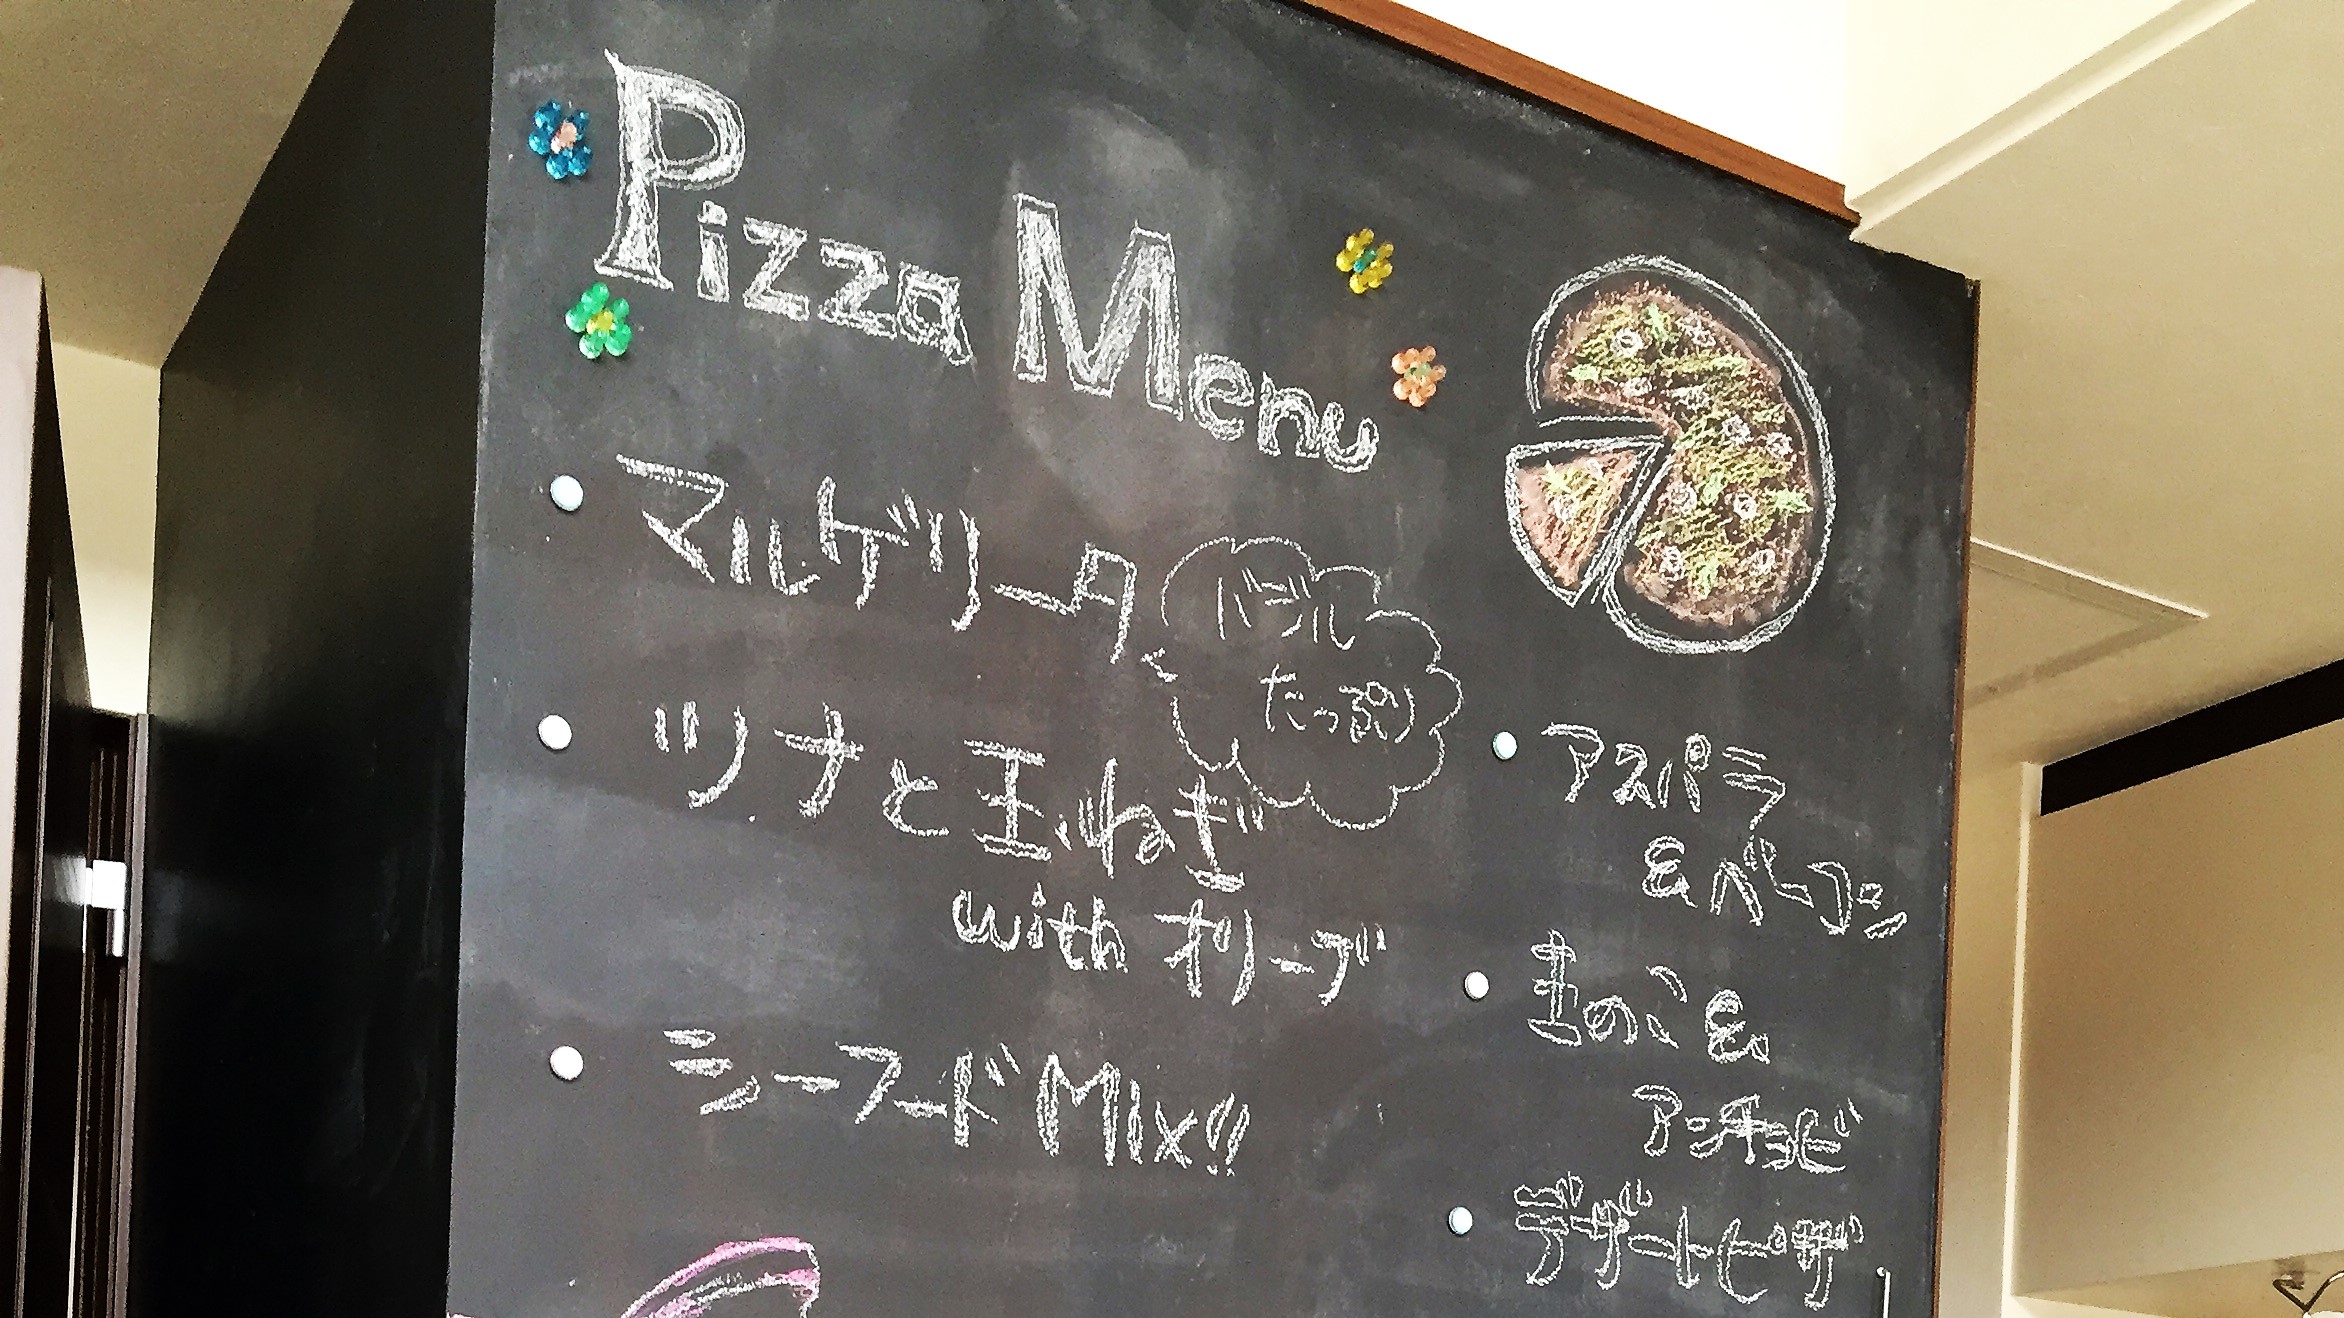 Pizza Menu
マルゲリータ
バジル
たっぷり
ツナと玉ねぎ
with オリーブ
シーフード Mix!!
アスパラ
&ベーコン
きのこ&
アンチョビ
デザートピザ